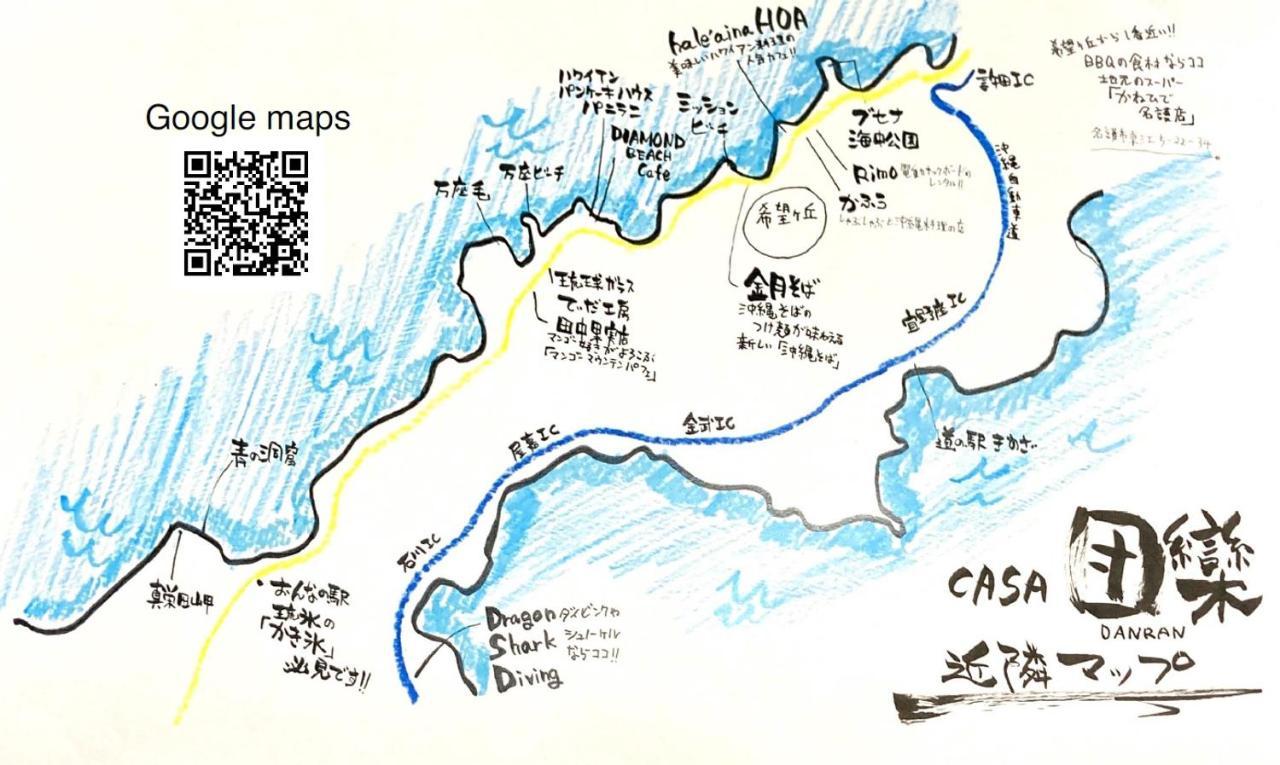 Google maps
hale'aina HOA
美味しいハワイアン料理の
人気カフェ!!
ハワイアン
パンケーキハウス
パニラニ
DIAMOND
BEACH
Cafe
ミッション
ビーチ
万座毛
万座ビーチ
許田IC
希望ヶ丘から1番近い!!
BBQの食材ならココ
地元のスーパー
「かねひで
名護店」
名護市東江5-22-34
ブセナ
海中公園
Rimo
レンタル!!
かふう
しゃぶしゃぶと沖縄料理の店
希望ヶ丘
沖縄自動車道
金月そば
沖縄そばの
つけ麺が味わえる
新しい「沖縄そば」
琉球ガラス
てぃだ工房
田中果実店
マンゴー好きがよろこぶ
「マンゴーマウンテンパフェ」
宜野座IC
金武IC
屋嘉IC
石川IC
道の駅 ぎのざ
青の洞窟
真栄田岬
おんなの駅
琉氷の
「かき氷」
必見です!!
Dragon ダイビングや
Shark シュノーケル
Diving ならココ!!
CASA 団欒
DANRAN
近隣マップ